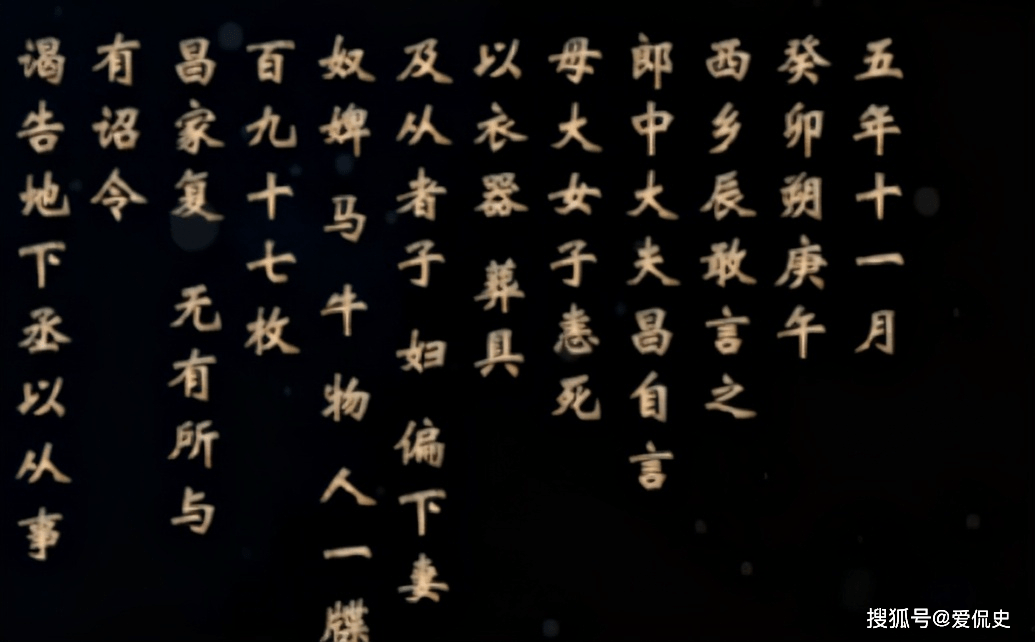 五年十一月
癸卯朔庚午
西乡辰敢言之
郎中大夫昌自言
母大女子恚死
以衣器 葬具
及从者子 妇 偏下妻
奴婢 马 牛 物 人一牒
百九十七枚
昌家复 无有所与
有诏令
谒告地下丞以从事
搜狐号@爱侃史